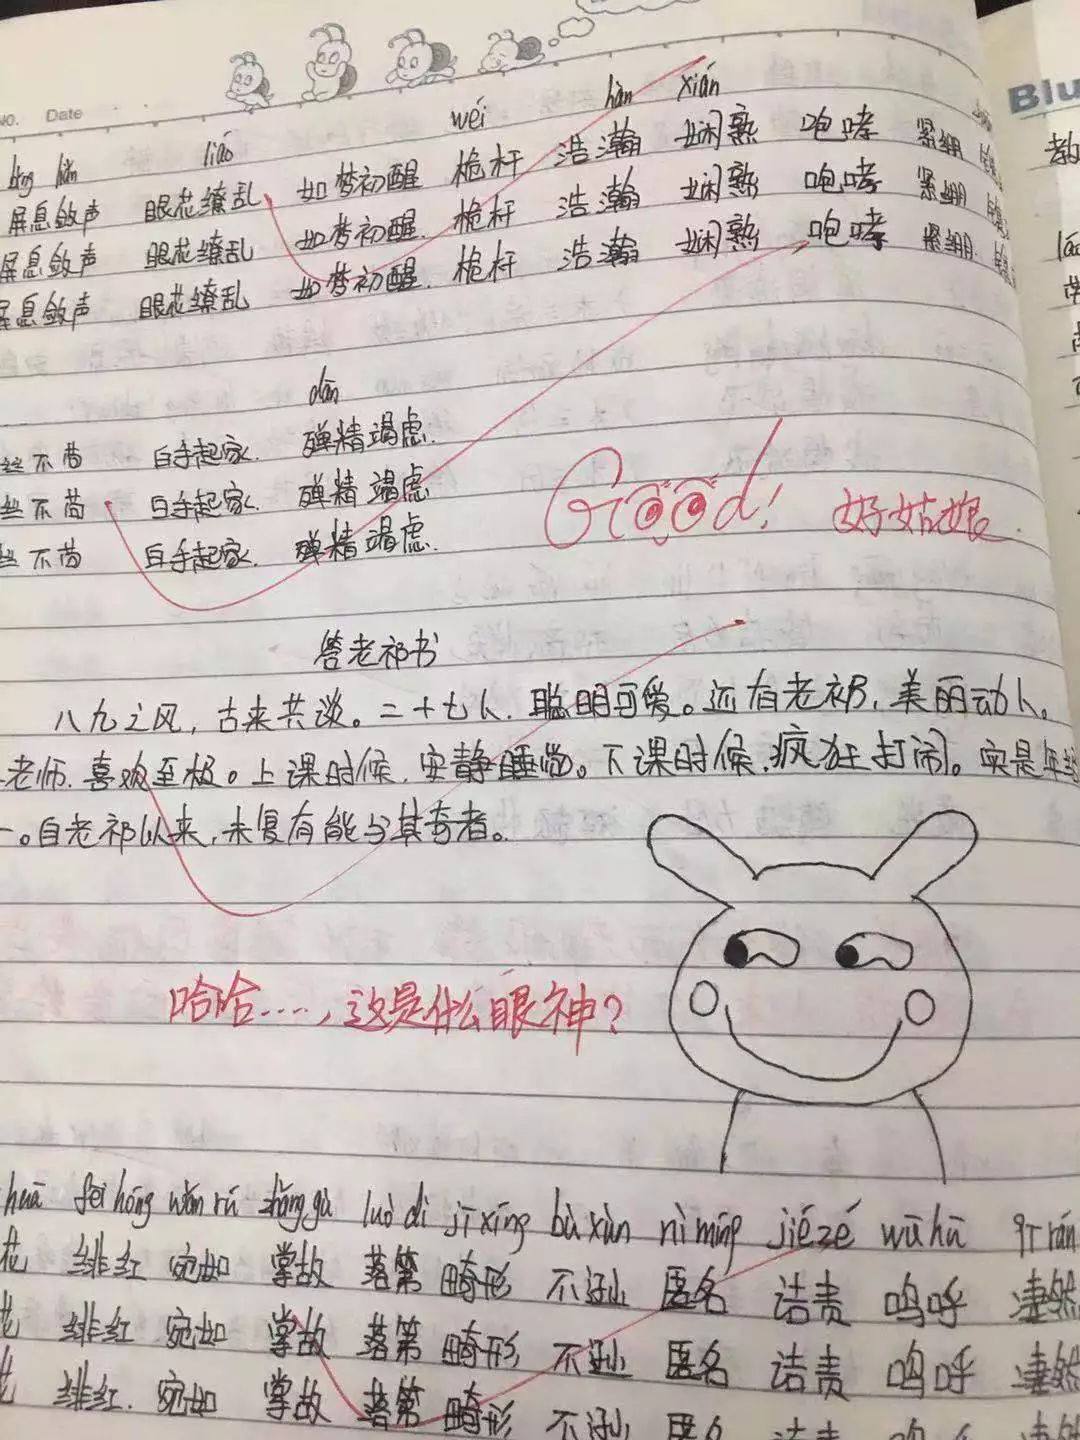 NO. Date
Blu
liáo wéi hàn xián
屏息敛声 眼花缭乱 如梦初醒 桅杆 浩瀚 娴熟 咆哮 紧绷
屏息敛声 眼花缭乱 如梦初醒. 桅杆 浩瀚 娴熟 咆哮 紧绷
屏息敛声 眼花缭乱 如梦初醒. 桅杆 浩瀚 娴熟 咆哮 紧绷.
教
dān
丝不苟 白手起家. 殚精竭虑.
丝不苟 白手起家. 殚精竭虑.
丝不苟 白手起家. 殚精竭虑.
Good! 好姑娘.
答老祁书
八九之风,古来共谈。二十七人.聪明可爱。还有老祁,美丽动人。
老师.喜欢至极。上课时候.安静睡觉。下课时候,疯狂打闹。实是年级
一。自老祁以来,未复有能与其奇者。
哈哈……,这是什么眼神?
huā fēi hóng wǎn rú zhǎng gù luò dì jī xíng bù xùn nì míng jié zé wū hū qī rán
花 绯红 宛如 掌故 落第 畸形 不逊 匿名 诘责 呜呼 凄然
花 绯红 宛如 掌故 落第 畸形 不逊 匿名 诘责 呜呼 凄然
花 绯红. 宛如 掌故 落第 畸形 不逊 匿名 诘责 呜呼 凄然